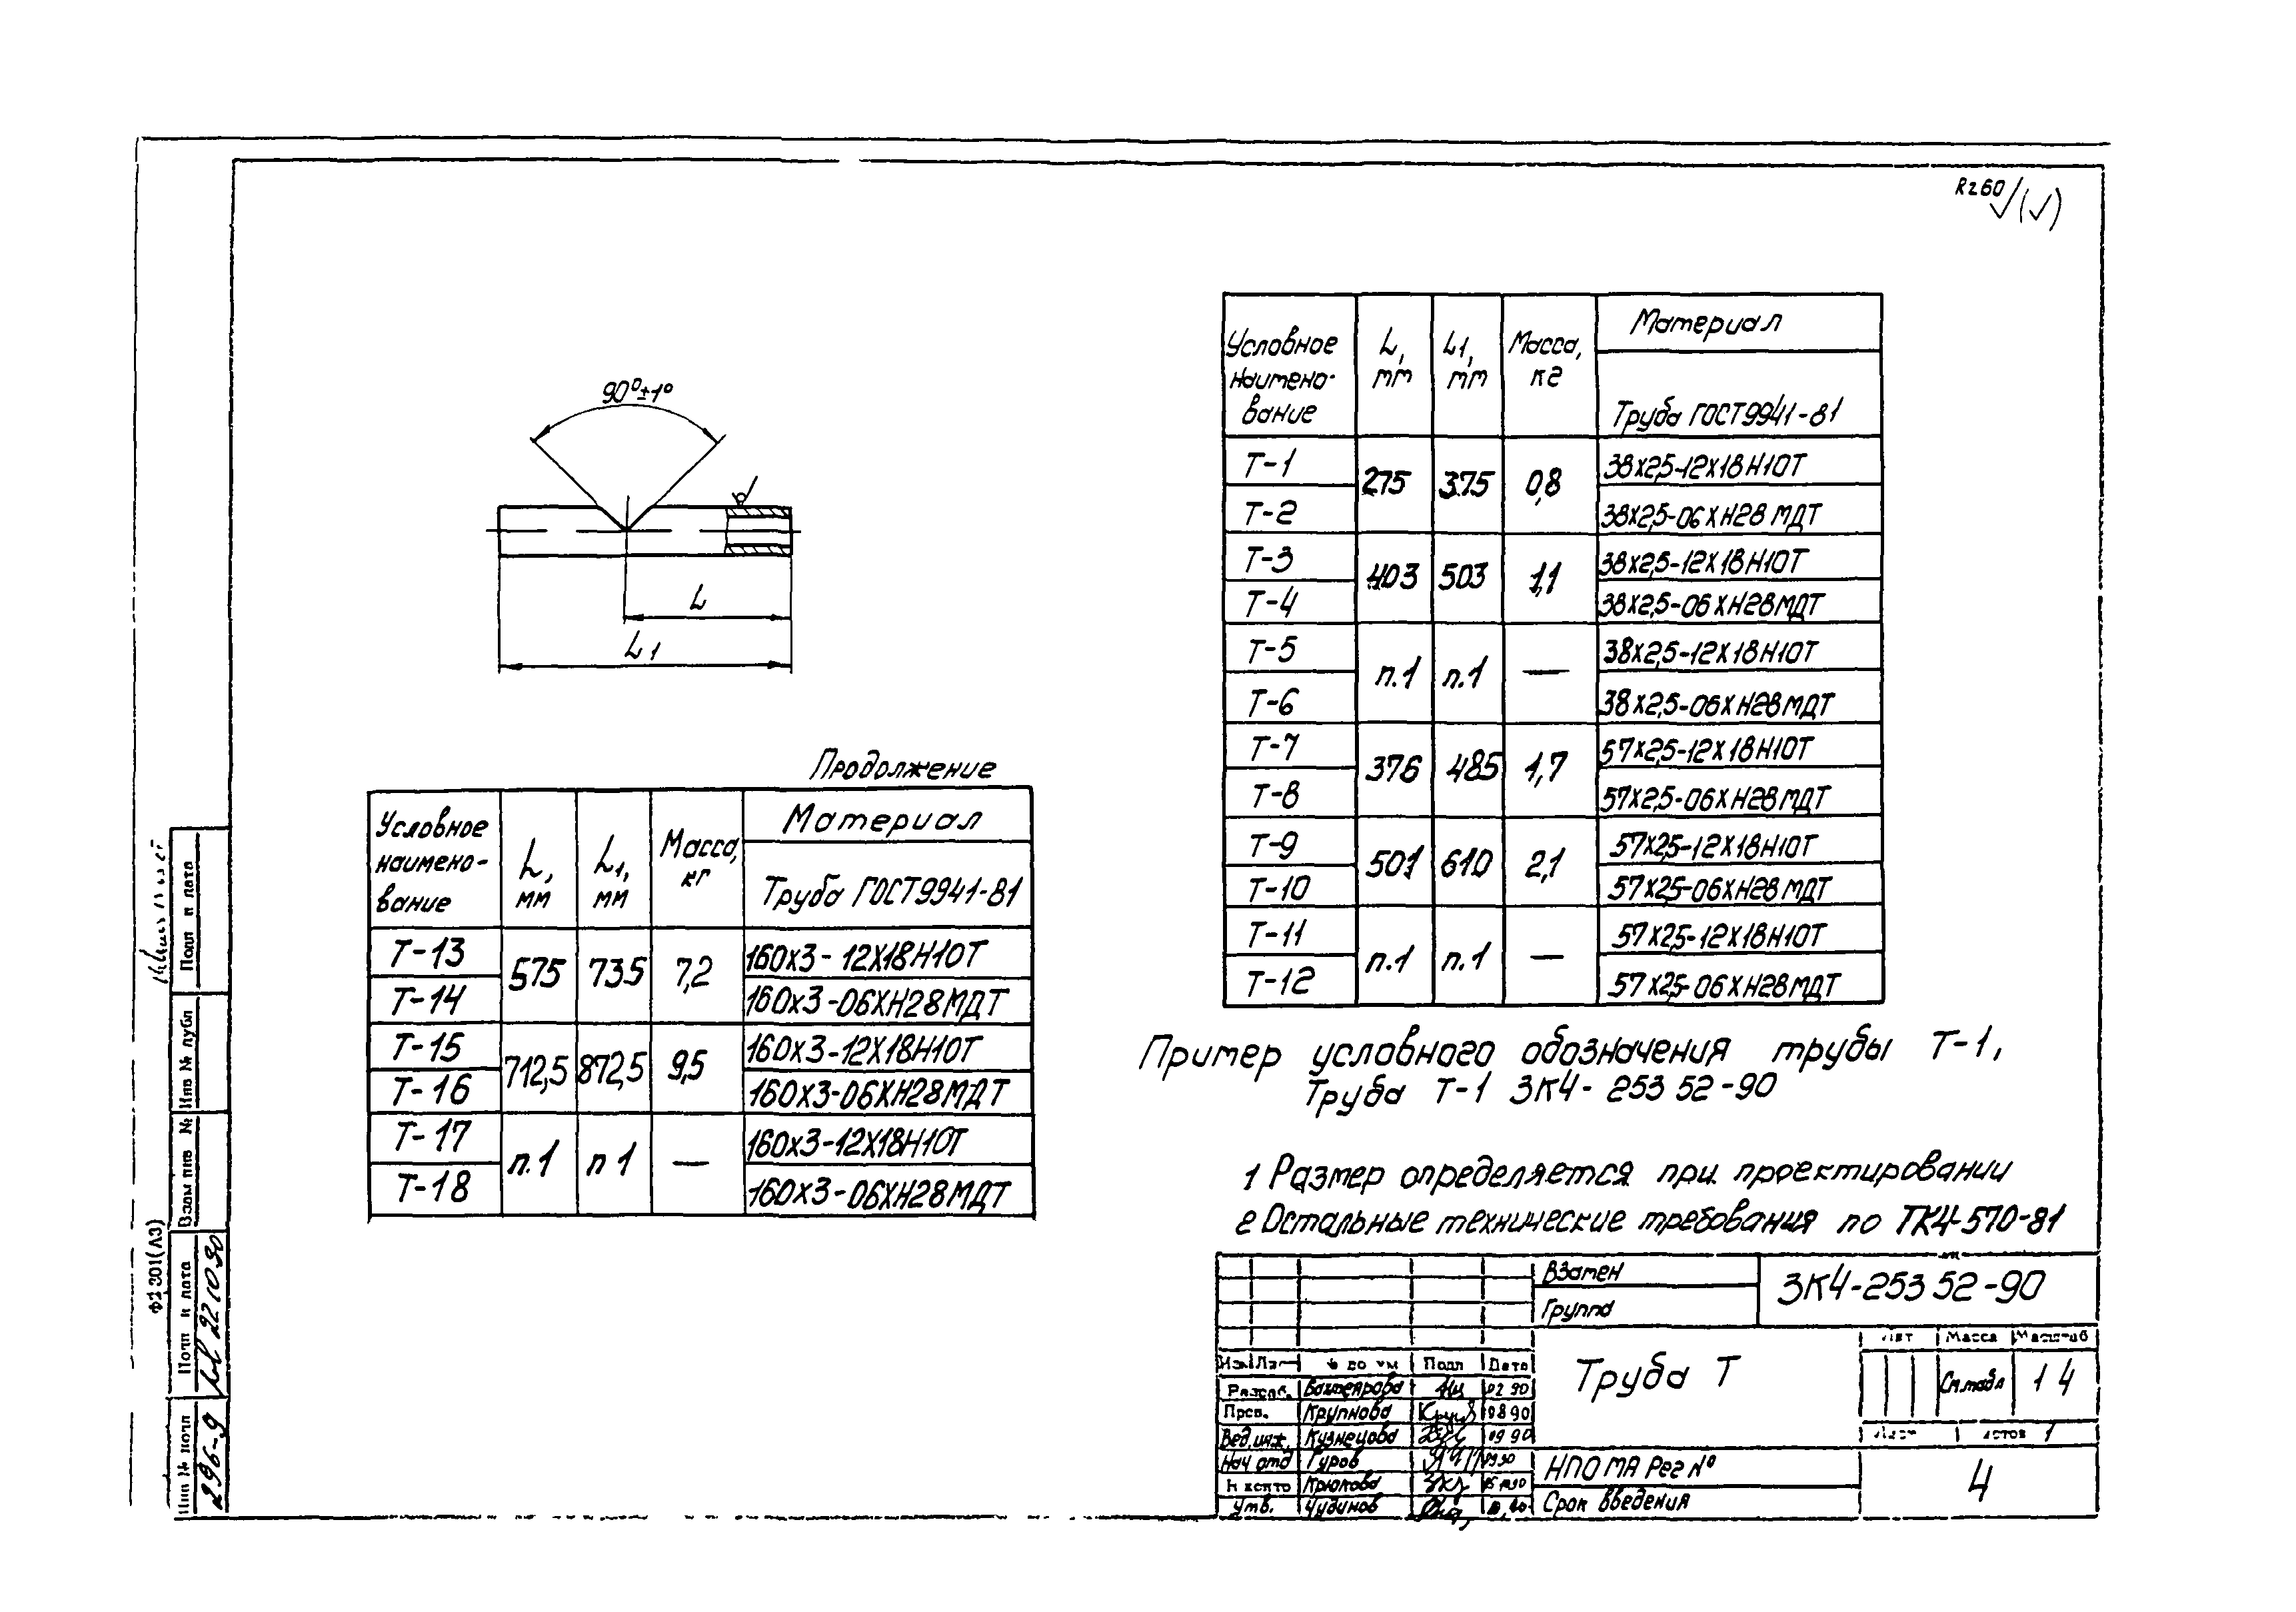 Rz60
90°±1°
L
L1
Условное наимено-вание | L, мм | L1, мм | Масса, кг | Материал
Труба ГОСТ 9941-81
Т-1 | 275 | 375 | 0,8 | 38х2,5-12Х18Н10Т
Т-2 | 38х2,5-06ХН28МДТ
Т-3 | 403 | 503 | 1,1 | 38х2,5-12Х18Н10Т
Т-4 | 38х2,5-06ХН28МДТ
Т-5 | п.1 | п.1 | — | 38х2,5-12Х18Н10Т
Т-6 | 38х2,5-06ХН28МДТ
Т-7 | 376 | 485 | 1,7 | 57х2,5-12Х18Н10Т
Т-8 | 57х2,5-06ХН28МДТ
Т-9 | 501 | 610 | 2,1 | 57х2,5-12Х18Н10Т
Т-10 | 57х2,5-06ХН28МДТ
Т-11 | п.1 | п.1 | — | 57х2,5-12Х18Н10Т
Т-12 | 57х2,5-06ХН28МДТ
Продолжение
Условное наимено-вание | L, мм | L1, мм | Масса, кг | Материал
Труба ГОСТ 9941-81
Т-13 | 575 | 735 | 7,2 | 160х3-12Х18Н10Т
Т-14 | 160х3-06ХН28МДТ
Т-15 | 712,5 | 872,5 | 9,5 | 160х3-12Х18Н10Т
Т-16 | 160х3-06ХН28МДТ
Т-17 | п.1 | п 1 | — | 160х3-12Х18Н10Т
Т-18 | 160х3-06ХН28МДТ
Пример условного обозначения трубы Т-1,
Труба Т-1 ЗК4-253 52-90
1 Размер определяется при проектировании
2 Остальные технические требования по ТК4-570-81
Взамен
Группа
ЗК4-253 52-90
Труба Т
Лит | Масса | Масштаб
См.табл | 1 4
Лист | 1
Подп | Дата
Разраб. | Вахтеярова | 02 90
Пров. | Крупнова | 08 90
Вед.инж. | Кузнецова | 09 90
Нач отд | Гуров
Н контр | Крюкова
Утв. | Чудинов
НПО МА Рег №
Срок введения
4
Подп и дата
Инв № дубл
Взам инв №
Подп и дата | 22 10 90
Инв № подл | 296-9
Ф2 301(А3)